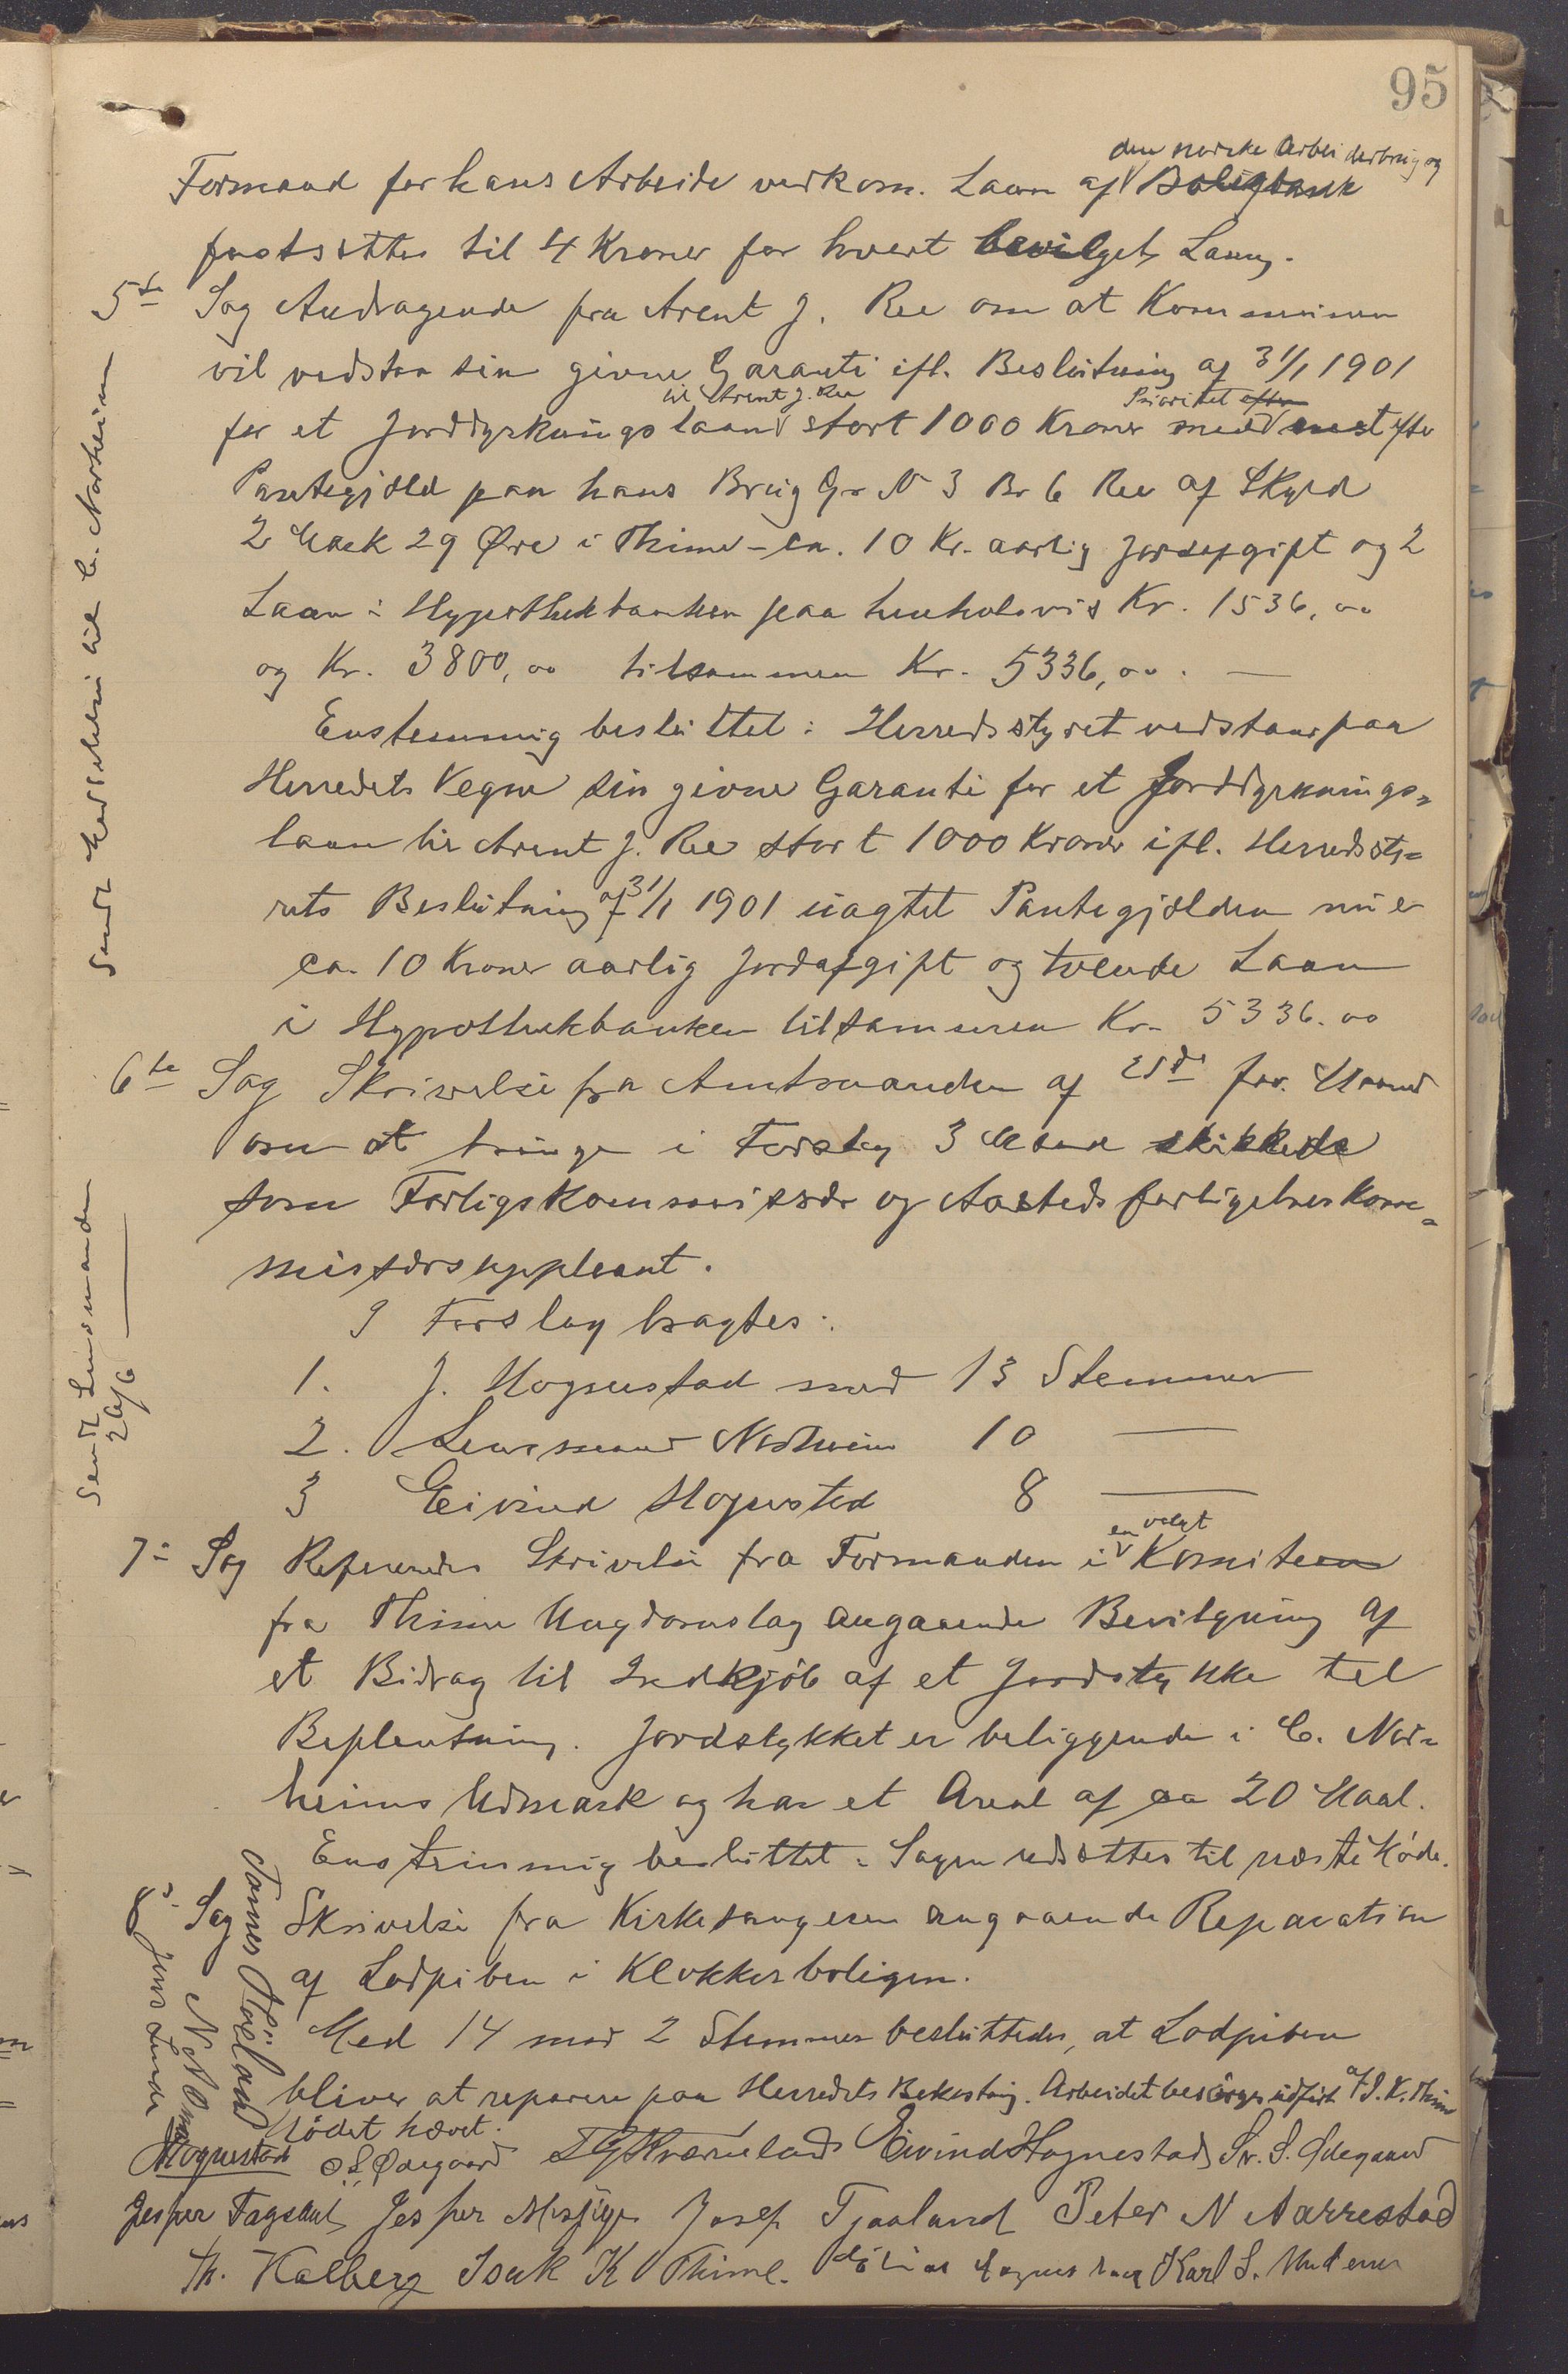 95
den norske Arbeiderbrug og
Formand for hans Arbeide vedkom. Laan af Boligbank
fastsættes til 4 Kroner for hvert bevilget Laan.
5te Sag Andragende fra Arent J. Ree om at Kommunen
vil vedstaa sin givne Garanti ifl. Beslutning af 31/1 1901
til Arent J. Ree Prioritet efter
for et Jorddyrkningslaan stort 1000 Kroner med næst efter
Pantegjæld paa hans Brug Gr N 3 Br 6 Ree af Skyld
2 Mark 29 Øre i Thime - ca. 10 Kr. aarlig Jordafgift og 2
Laan i Hypothekbanken paa henholdsvis Kr. 1536,00
og Kr. 3800,00 tilsammen Kr. 5336,00. —
Enstemmig besluttet: Herredsstyret vedstaar paa
Herredets Vegne sin givne Garanti for et Jorddyrknings-
laan til Arent J. Ree stort 1000 Kroner ifl. Herredssty-
rets Beslutning af 31/1 1901 uagtet Pantegjælden nu er
ca. 10 Kroner aarlig Jordafgift og tvende Laan
i Hypothekbanken tilsammen Kr. 5336.00
Sendt Meddelelse til C. Norheim
6te Sag Skrivelse fra Amtmanden af for. Maaned
om at bringe i Forslag 3 Mænd skikkede
som Forligskommissær og Aastedsforligelseskom-
missærsuppleant.
I Forslag bragtes:
1. J. Hognestad med 13 Stemmer
2. Lensmand Norheim 10 —
3 Eivind Hognestad 8 —
Sendt Lensmanden
26/6
en valgt
7de Sag Refereredes Skrivelse fra Formanden i Komiteen
fra Thime Ungdomslag angaaende Bevilgning af
et Bidrag til Indkjøb af et Jordstykke til
Beplantning. Jordstykket er beliggende i C. Nor-
heims Udmark og har et Areal af ca 20 Maal.
Enstemmig besluttet: Sagen udsættes til næste Møde.
8de Sag Skrivelse fra Kirkesangeren angaaende Reparation
af Lodpiben i Klokkerboligen.
Med 14 mod 2 Stemmer besluttedes, at Lodpiben
bliver at reparere paa Herredets Bekostning. Arbeidet besørges udført af I. K. Thime
Mødet hævet.
Hognestad O. S. Ødegaard Kværneland Eivind Hognestad Sv. S. Ødegaard
Jesper Jesper Josef Tjaaland Peter N Aarrestad
Th. Kalberg Isak K Thime. Karl S. Undem
Jens Lende